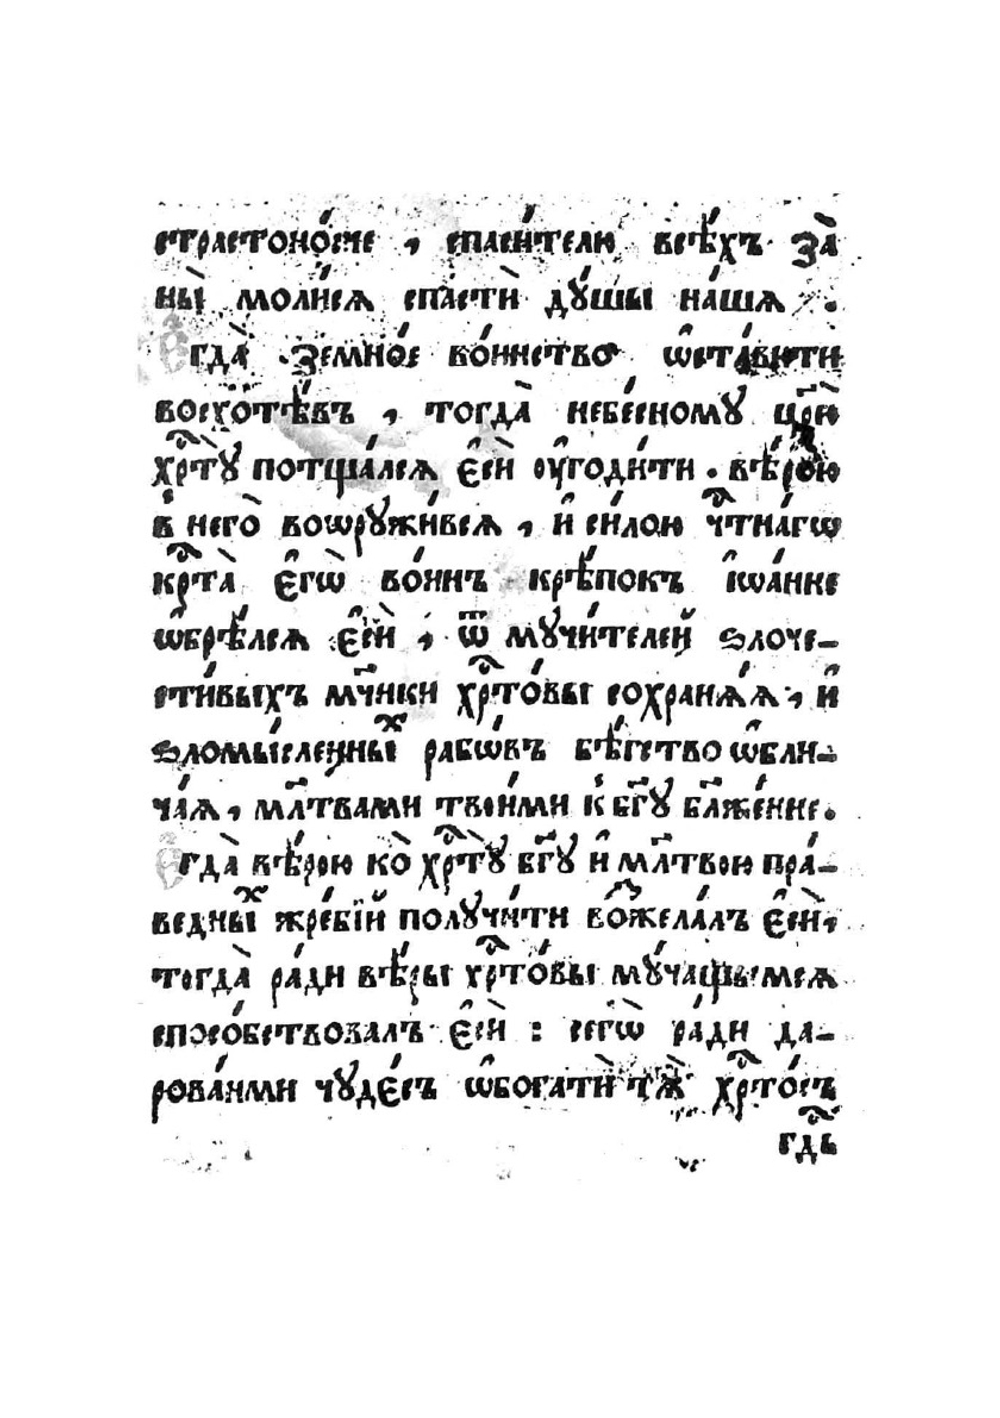 страстоно́сче , спаси́телю всѣ́хъ за̀
ны̀ моли́сѧ спастѝ дꙋ́шы на́шѧ .
Е҆гда̀ земно́е во́инство ѡ҆ста́вити
восхотѣ́въ , тогда̀ небе́сномꙋ цр҃ю̀
хрⷭ҇тꙋ̀ потща́лсѧ є҆сѝ ᲂу҆годи́ти . вѣ́рою
в̾ него̀ воѡрꙋжи́всѧ , и҆ си́лою чⷭ҇тна́гѡ
крⷭ҇та̀ є҆гѡ̀ во́инъ крѣ́покъ і҆ѡа́нне
ѡ҆брѣ́лсѧ є҆сѝ , ѿ мꙋчи́телей ѕлоче-
сти́выхъ мч҃нки хрⷭ҇то́вы сохранѧ́ѧ , и҆
ѕломы́сленныⷯ рабѡ́въ бѣ́гство ѡ҆бли-
ча́ѧ , мл҃твами твои́ми к̾ бг҃ꙋ бл҃же́нне .
Е҆гда̀ вѣ́рою ко̀ хрⷭ҇тꙋ̀ бг҃ꙋ и҆ мл҃твою пра́-
ведныⷯ жре́бїй полꙋчи́ти воⷤжела́лъ є҆сѝ ,
тогда̀ ра́ди вѣ́ры хрⷭ҇то́вы мꙋ́чащымсѧ
спосо́бствовалъ є҆сѝ : сегѡ̀ ра́ди да-
рова́нми чꙋде́съ ѡ҆богатѝ тѧ̀ хрⷭ҇то́съ
гдⷭ҇ь